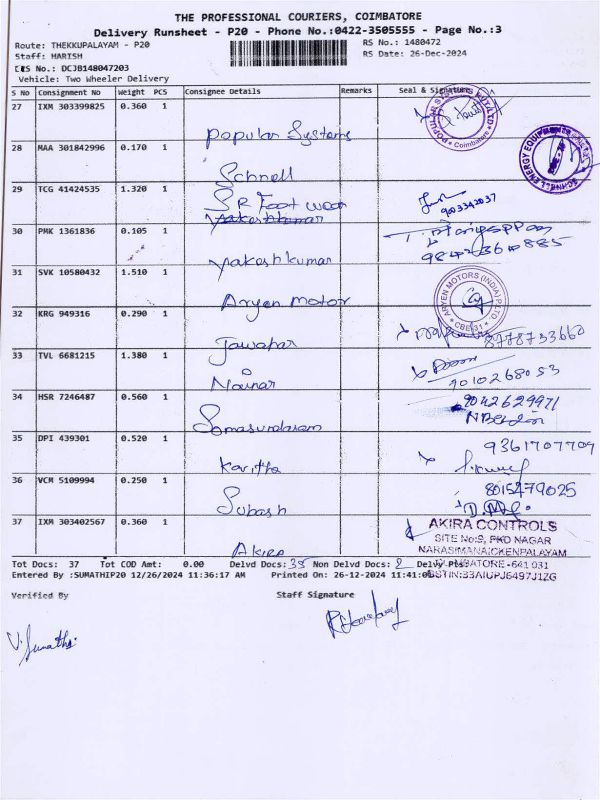 THE PROFESSIONAL COURIERS, COIMBATORE
Delivery Runsheet - P20 - Phone No.:0422-3505555 - Page No.:3
Route: THEKKUPALAYAM - P20
RS No.: 1480472
Staff: HARISH
RS Date: 26-Dec-2024
DRS No.: DCJB148047203
Vehicle: Two Wheeler Delivery
S No Consignment No Weight PCS Consignee Details Remarks Seal & Signature
27 IXM 303399825 0.360 1
Popular Systems
POPULAR SYSTEMS Coimbatore
28 MAA 301842996 0.170 1
Schnell
SCHNELL ENERGY EQUIPMENTS
29 TCG 41424535 1.320 1
SR Foot wear
Yakeshkumar
30 PMK 1361836 0.105 1
Yakeshkumar
31 SVK 10580432 1.510 1
Aryen Motor
ARYEN MOTORS (INDIA) P. LTD. CBE-31
32 KRG 949316 0.290 1
Jawahar
8778733660
33 TVL 6681215 1.380 1
Nainar
9010268053
34 HSR 7246487 0.560 1
9042629971
Somasundaram
35 DPI 439301 0.520 1
9361707709
Kavitha
36 VCM 5109994 0.250 1
8015479025
Subash
37 IXM 303402567 0.360 1
Akira
AKIRA CONTROLS
SITE No:9, PKD NAGAR
NARASIMANAICKENPALAYAM
COIMBATORE-641 031
GSTIN:33AIUPJ6497J1ZG
Tot Docs: 37 Tot COD Amt: 0.00 Delvd Docs: 35 Non Delvd Docs: 2
Entered By :SUMATHIP20 12/26/2024 11:36:17 AM Printed On: 26-12-2024
Verified By Staff Signature
V. Sumathi